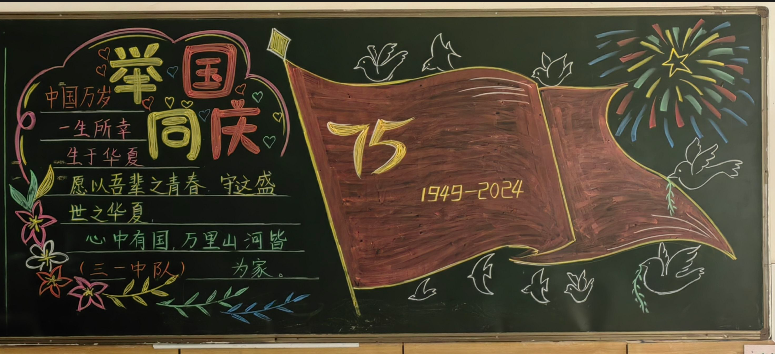 举国
同庆
中国万岁
一生所幸
生于华夏
愿以吾辈之青春 守这盛
世之华夏.
心中有国,万里山河皆
为家。
(三一中队)
75
1949-2024